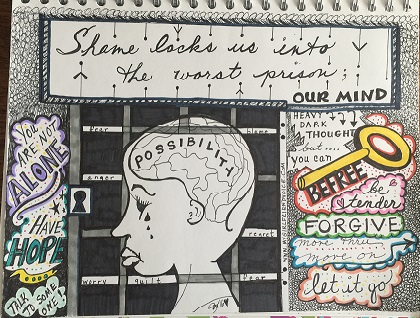 Shame locks us into
the worst prison;
OUR MIND
YOU
ARE NOT
ALONE
HAVE
HOPE
TALK TO
SOME
ONE!
fear
blame
anger
regret
worry
guilt
fear
POSSIBILITY
HEAVY
DARK
THOUGHTS
but....
you can
BE FREE
be
tender
FORGIVE
move thru
move on
let it go